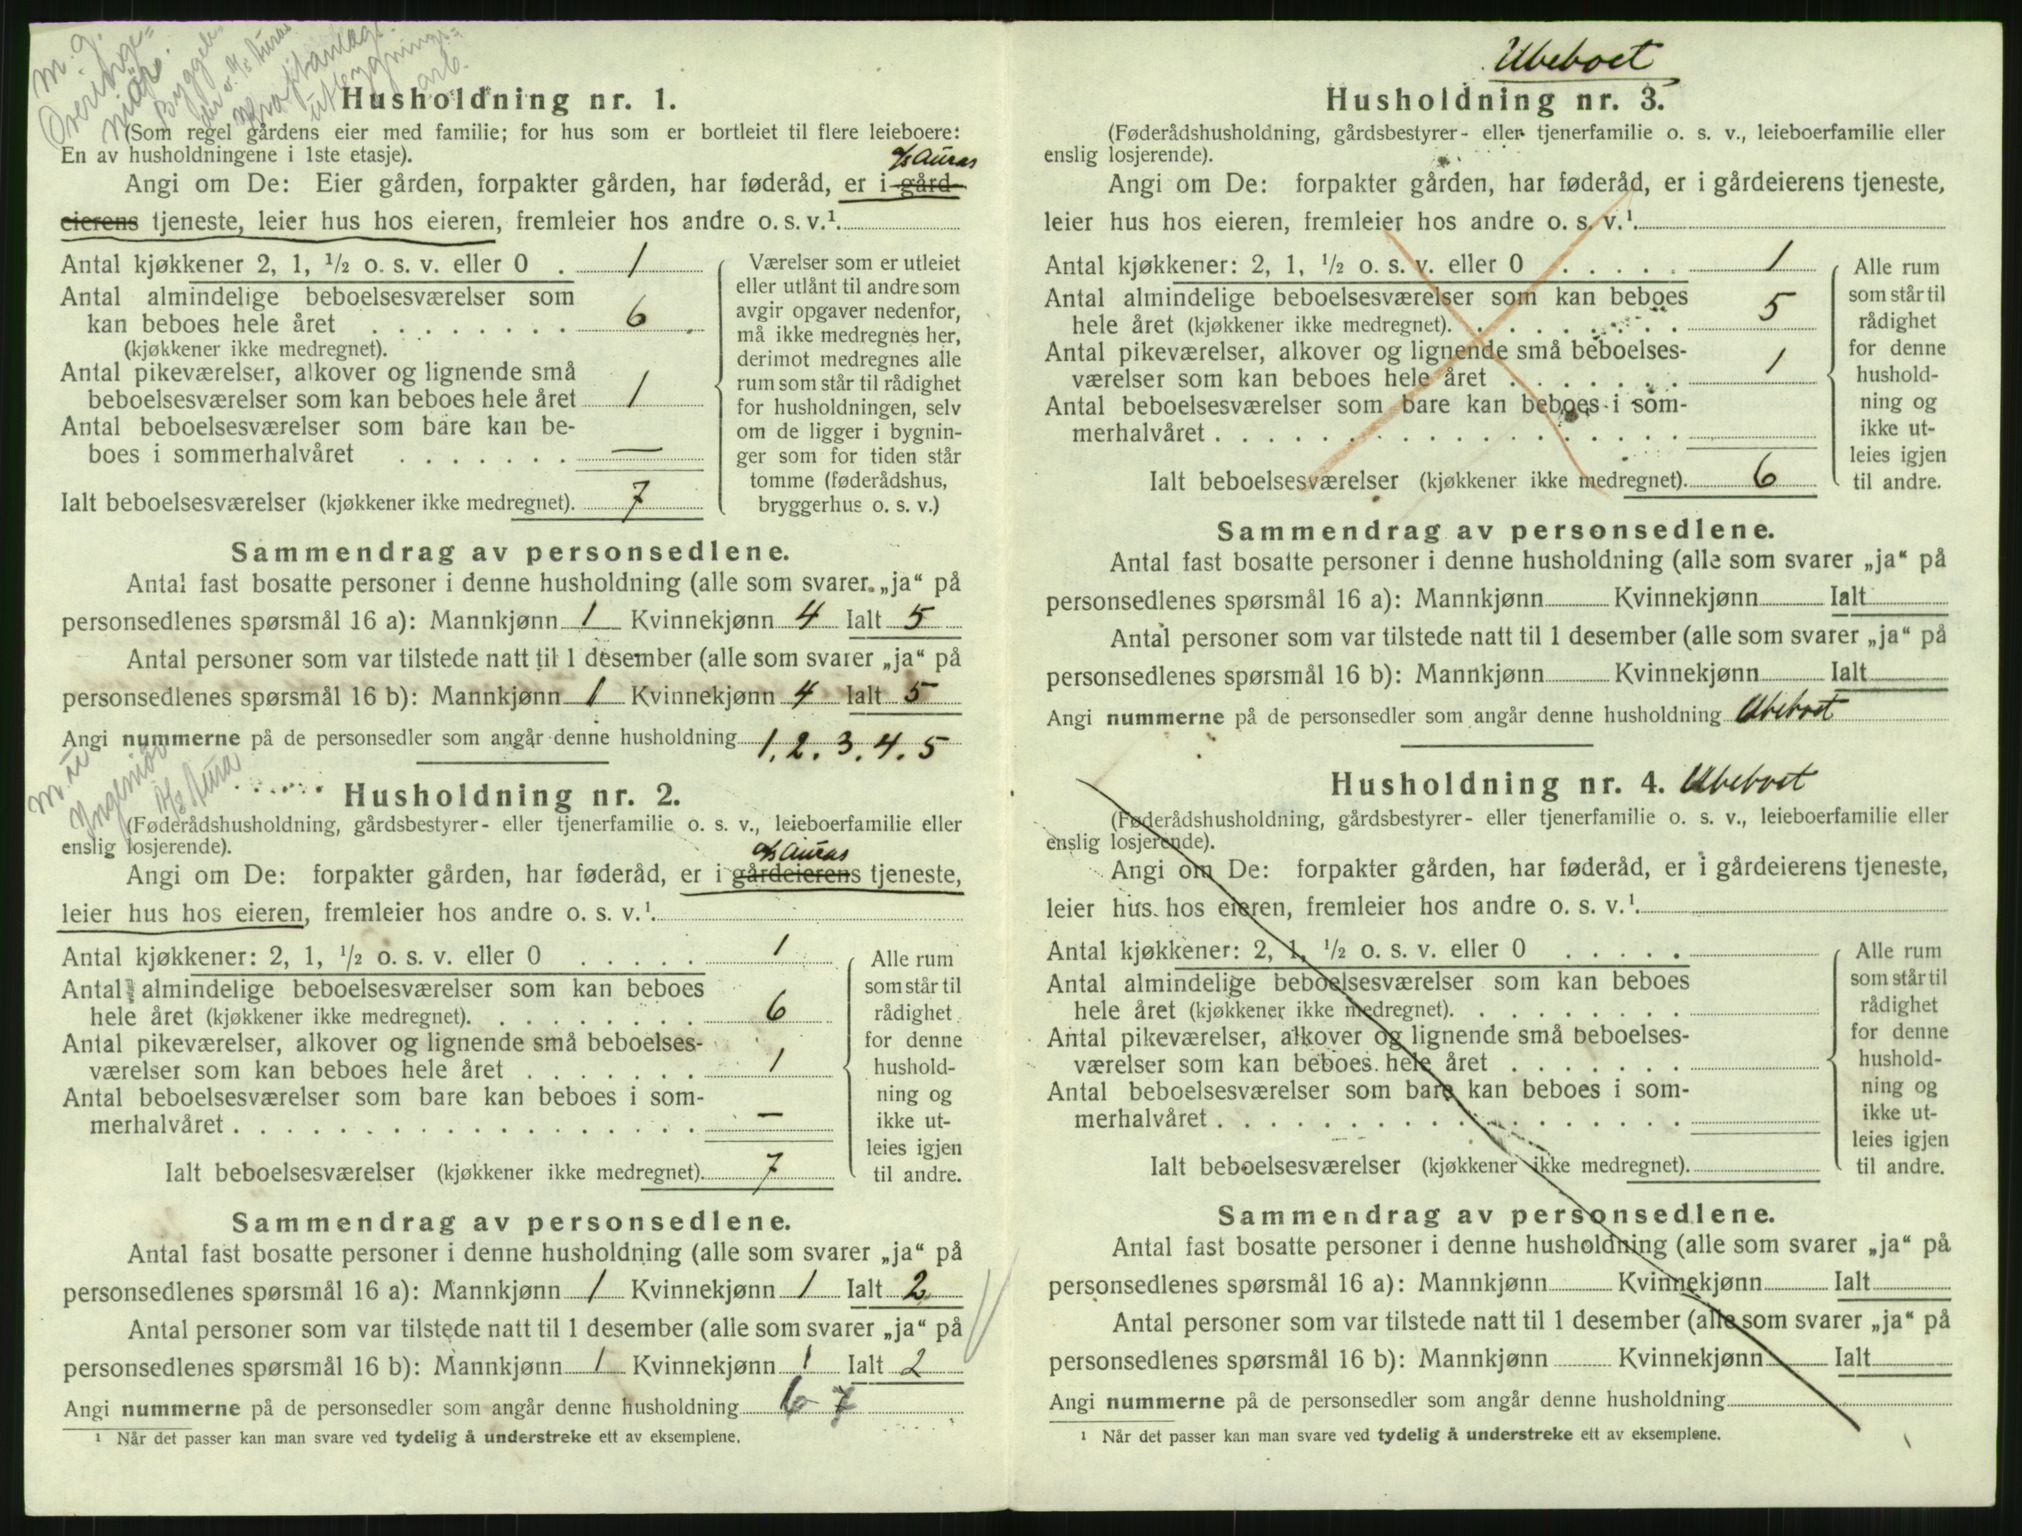 m. g.
Overinge=
niør.
Byggele
A/S Auras
Kraftanlegs
utbygnings=
arb.
Husholdning nr. 1.
(Som regel gårdens eier med familie; for hus som er bortleiet til flere leieboere:
En av husholdningene i 1ste etasje).
A/S Auras
Angi om De: Eier gården, forpakter gården, har føderåd, er i gård-
eierens tjeneste, leier hus hos eieren, fremleier hos andre o. s. v.¹
Antal kjøkkener 2, 1, ½ o. s. v. eller 0 . 1
Antal almindelige beboelsesværelser som
kan beboes hele året . . . . . . . . 6
(kjøkkener ikke medregnet).
Antal pikeværelser, alkover og lignende små
beboelsesværelser som kan beboes hele året 1
Antal beboelsesværelser som bare kan be-
boes i sommerhalvåret . . . . . . . —
Ialt beboelsesværelser (kjøkkener ikke medregnet). 7
Værelser som er utleiet
eller utlånt til andre som
avgir opgaver nedenfor,
må ikke medregnes her,
derimot medregnes alle
rum som står til rådighet
for husholdningen, selv
om de ligger i bygnin-
ger som for tiden står
tomme (føderådshus,
bryggerhus o. s. v.)
Sammendrag av personsedlene.
Antal fast bosatte personer i denne husholdning (alle som svarer „ja“ på
personsedlenes spørsmål 16 a): Mannkjønn 1 Kvinnekjønn 4 Ialt 5
Antal personer som var tilstede natt til 1 desember (alle som svarer „ja“ på
personsedlenes spørsmål 16 b): Mannkjønn 1 Kvinnekjønn 4 Ialt 5
Angi nummerne på de personsedler som angår denne husholdning 1. 2. 3. 4. 5
Ingeniør
A/S Aura
Husholdning nr. 2.
(Føderådshusholdning, gårdsbestyrer- eller tjenerfamilie o. s. v., leieboerfamilie eller
enslig losjerende).
A/S Auras
Angi om De: forpakter gården, har føderåd, er i gårdeierens tjeneste,
leier hus hos eieren, fremleier hos andre o. s. v.¹
Antal kjøkkener: 2, 1, ½ o. s. v. eller 0 . . . . . 1
Antal almindelige beboelsesværelser som kan beboes
hele året (kjøkkener ikke medregnet). . . . . . . . . 6
Antal pikeværelser, alkover og lignende små beboelses-
værelser som kan beboes hele året . . . . . . . 1
Antal beboelsesværelser som bare kan beboes i som-
merhalvåret . . . . . . . . . . . . . . . . . . —
Ialt beboelsesværelser (kjøkkener ikke medregnet). 7
Alle rum
som står til
rådighet
for denne
hushold-
ning og
ikke ut-
leies igjen
til andre.
Sammendrag av personsedlene.
Antal fast bosatte personer i denne husholdning (alle som svarer „ja“ på
personsedlenes spørsmål 16 a): Mannkjønn 1 Kvinnekjønn 1 Ialt 2
Antal personer som var tilstede natt til 1 desember (alle som svarer „ja“ på
personsedlenes spørsmål 16 b): Mannkjønn 1 Kvinnekjønn 1 Ialt 2
Angi nummerne på de personsedler som angår denne husholdning 6 7
¹ Når det passer kan man svare ved tydelig å understreke ett av eksemplene.
Ubeboet
Husholdning nr. 3.
(Føderådshusholdning, gårdsbestyrer- eller tjenerfamilie o. s. v., leieboerfamilie eller
enslig losjerende).
Angi om De: forpakter gården, har føderåd, er i gårdeierens tjeneste,
leier hus hos eieren, fremleier hos andre o. s. v.¹
Antal kjøkkener: 2, 1, ½ o. s. v. eller 0 . . . . . 1
Antal almindelige beboelsesværelser som kan beboes
hele året (kjøkkener ikke medregnet). . . . . . . . . 5
Antal pikeværelser, alkover og lignende små beboelses-
værelser som kan beboes hele året . . . . . . . 1
Antal beboelsesværelser som bare kan beboes i som-
merhalvåret . . . . . . . . . . . . . . . . . .
Ialt beboelsesværelser (kjøkkener ikke medregnet). 6
Alle rum
som står til
rådighet
for denne
hushold-
ning og
ikke ut-
leies igjen
til andre.
Sammendrag av personsedlene.
Antal fast bosatte personer i denne husholdning (alle som svarer „ja“ på
personsedlenes spørsmål 16 a): Mannkjønn Kvinnekjønn Ialt
Antal personer som var tilstede natt til 1 desember (alle som svarer „ja“ på
personsedlenes spørsmål 16 b): Mannkjønn Kvinnekjønn Ialt
Angi nummerne på de personsedler som angår denne husholdning Ubeboet
Husholdning nr. 4. Ubeboet
(Føderådshusholdning, gårdsbestyrer- eller tjenerfamilie o. s. v., leieboerfamilie eller
enslig losjerende).
Angi om De: forpakter gården, har føderåd, er i gårdeierens tjeneste,
leier hus hos eieren, fremleier hos andre o. s. v.¹
Antal kjøkkener: 2, 1, ½ o. s. v. eller 0 . . . . .
Antal almindelige beboelsesværelser som kan beboes
hele året (kjøkkener ikke medregnet). . . . . . . . .
Antal pikeværelser, alkover og lignende små beboelses-
værelser som kan beboes hele året . . . . . . .
Antal beboelsesværelser som bare kan beboes i som-
merhalvåret . . . . . . . . . . . . . . . . . .
Ialt beboelsesværelser (kjøkkener ikke medregnet).
Alle rum
som står til
rådighet
for denne
hushold-
ning og
ikke ut-
leies igjen
til andre.
Sammendrag av personsedlene.
Antal fast bosatte personer i denne husholdning (alle som svarer „ja“ på
personsedlenes spørsmål 16 a): Mannkjønn Kvinnekjønn Ialt
Antal personer som var tilstede natt til 1 desember (alle som svarer „ja“ på
personsedlenes spørsmål 16 b): Mannkjønn Kvinnekjønn Ialt
Angi nummerne på de personsedler som angår denne husholdning
¹ Når det passer kan man svare ved tydelig å understreke ett av eksemplene.